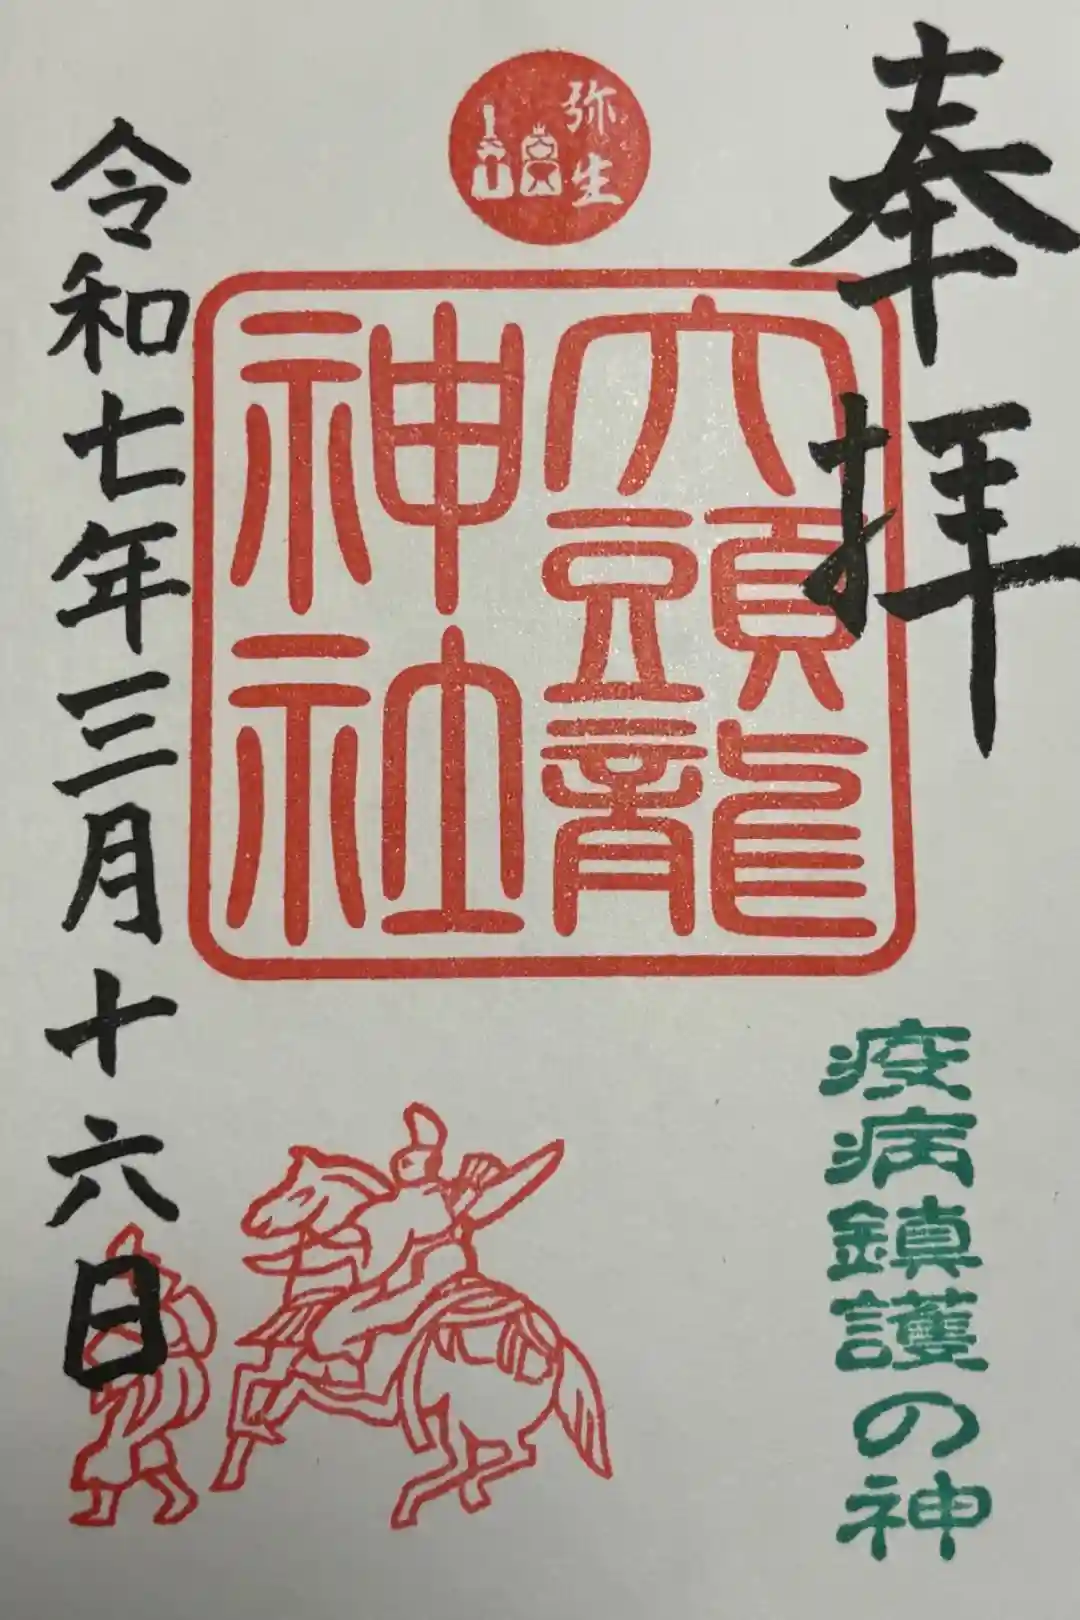 奉拝
弥生
大頭龍
神社
疫病鎮護の神
令和七年三月十六日